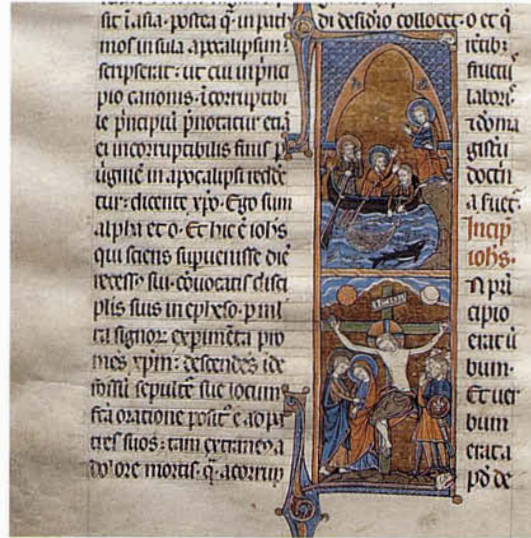 sit ĩ asia · postea q̃ in path
mos insula apocalipsim
scripserat: ut cui in pͥnci
pio canonis · ĩcorruptibi
le pͥncipiũ pͥnotatur etiã
ei incorruptibilis finis p̲
uginẽ in apocalipsi redde
tur: dicente xp̃o · Ego sum
alpha et o · Et hic ẽ ioh̃s
qui sciens supuenisse diẽ
recess9 sui · ↄuocatis disci
plis suis in epheso · p ml̃
ta signoꝝ expimẽta pro
mẽs xp̃m: descendẽs ĩ de
fossũ sepultẽ sue locum
fc̃a oratione posit9 ẽ ad pa
tres suos: tam extraneus a
dolore mortis · q̃ · a corrup
di desid̾io collocet · o et q̃
rẽtibꝫ
fructũ
labori9
⁊ dõ ma
gistũ
doctͥn
a suet2
Incip̃
ioh̃s ·
N pͥn
cipio
erat ũ
bum ·
Et uer
bum
erat a
pd̾ de